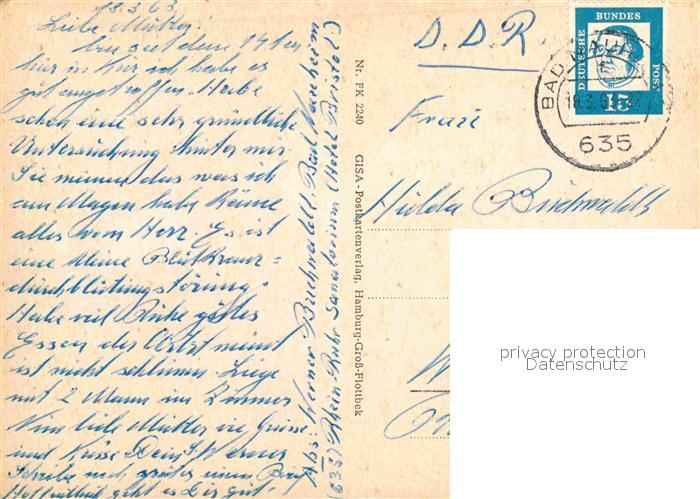 18.3.63.
Liebe Mutter!
Bin seit dem 14ten
hier in Kur ich habe es
gut angetroffen. Habe
schon eine sehr gründliche
Untersuchung hinter mir.
Sie meinen das was ich
am Magen habe käme
alles vom Herz. Es ist
eine kleine
durchblutungsstörung.
Habe viel Ruhe gutes
Essen der Arzt meint
ist nicht schlimm. Liege
mit 2 Mann im Zimmer
Nun liebe Mutter viele Grüsse
und Küsse Dein S. Werner
Schreibe noch später einen Brief
Hoffentlich geht es Dir gut.
Abs: Werner Buchwald Bad Nauheim
Sanatorium
Nr. PK 2240
GISA-Postkartenverlag, Hamburg-Groß-Flottbek
D.D.R.
DEUTSCHE
BUNDES
POST
15
BAD NAUHEIM
18.3.63
635
Frau
Hulda Buchwald
privacy protection
Datenschutz